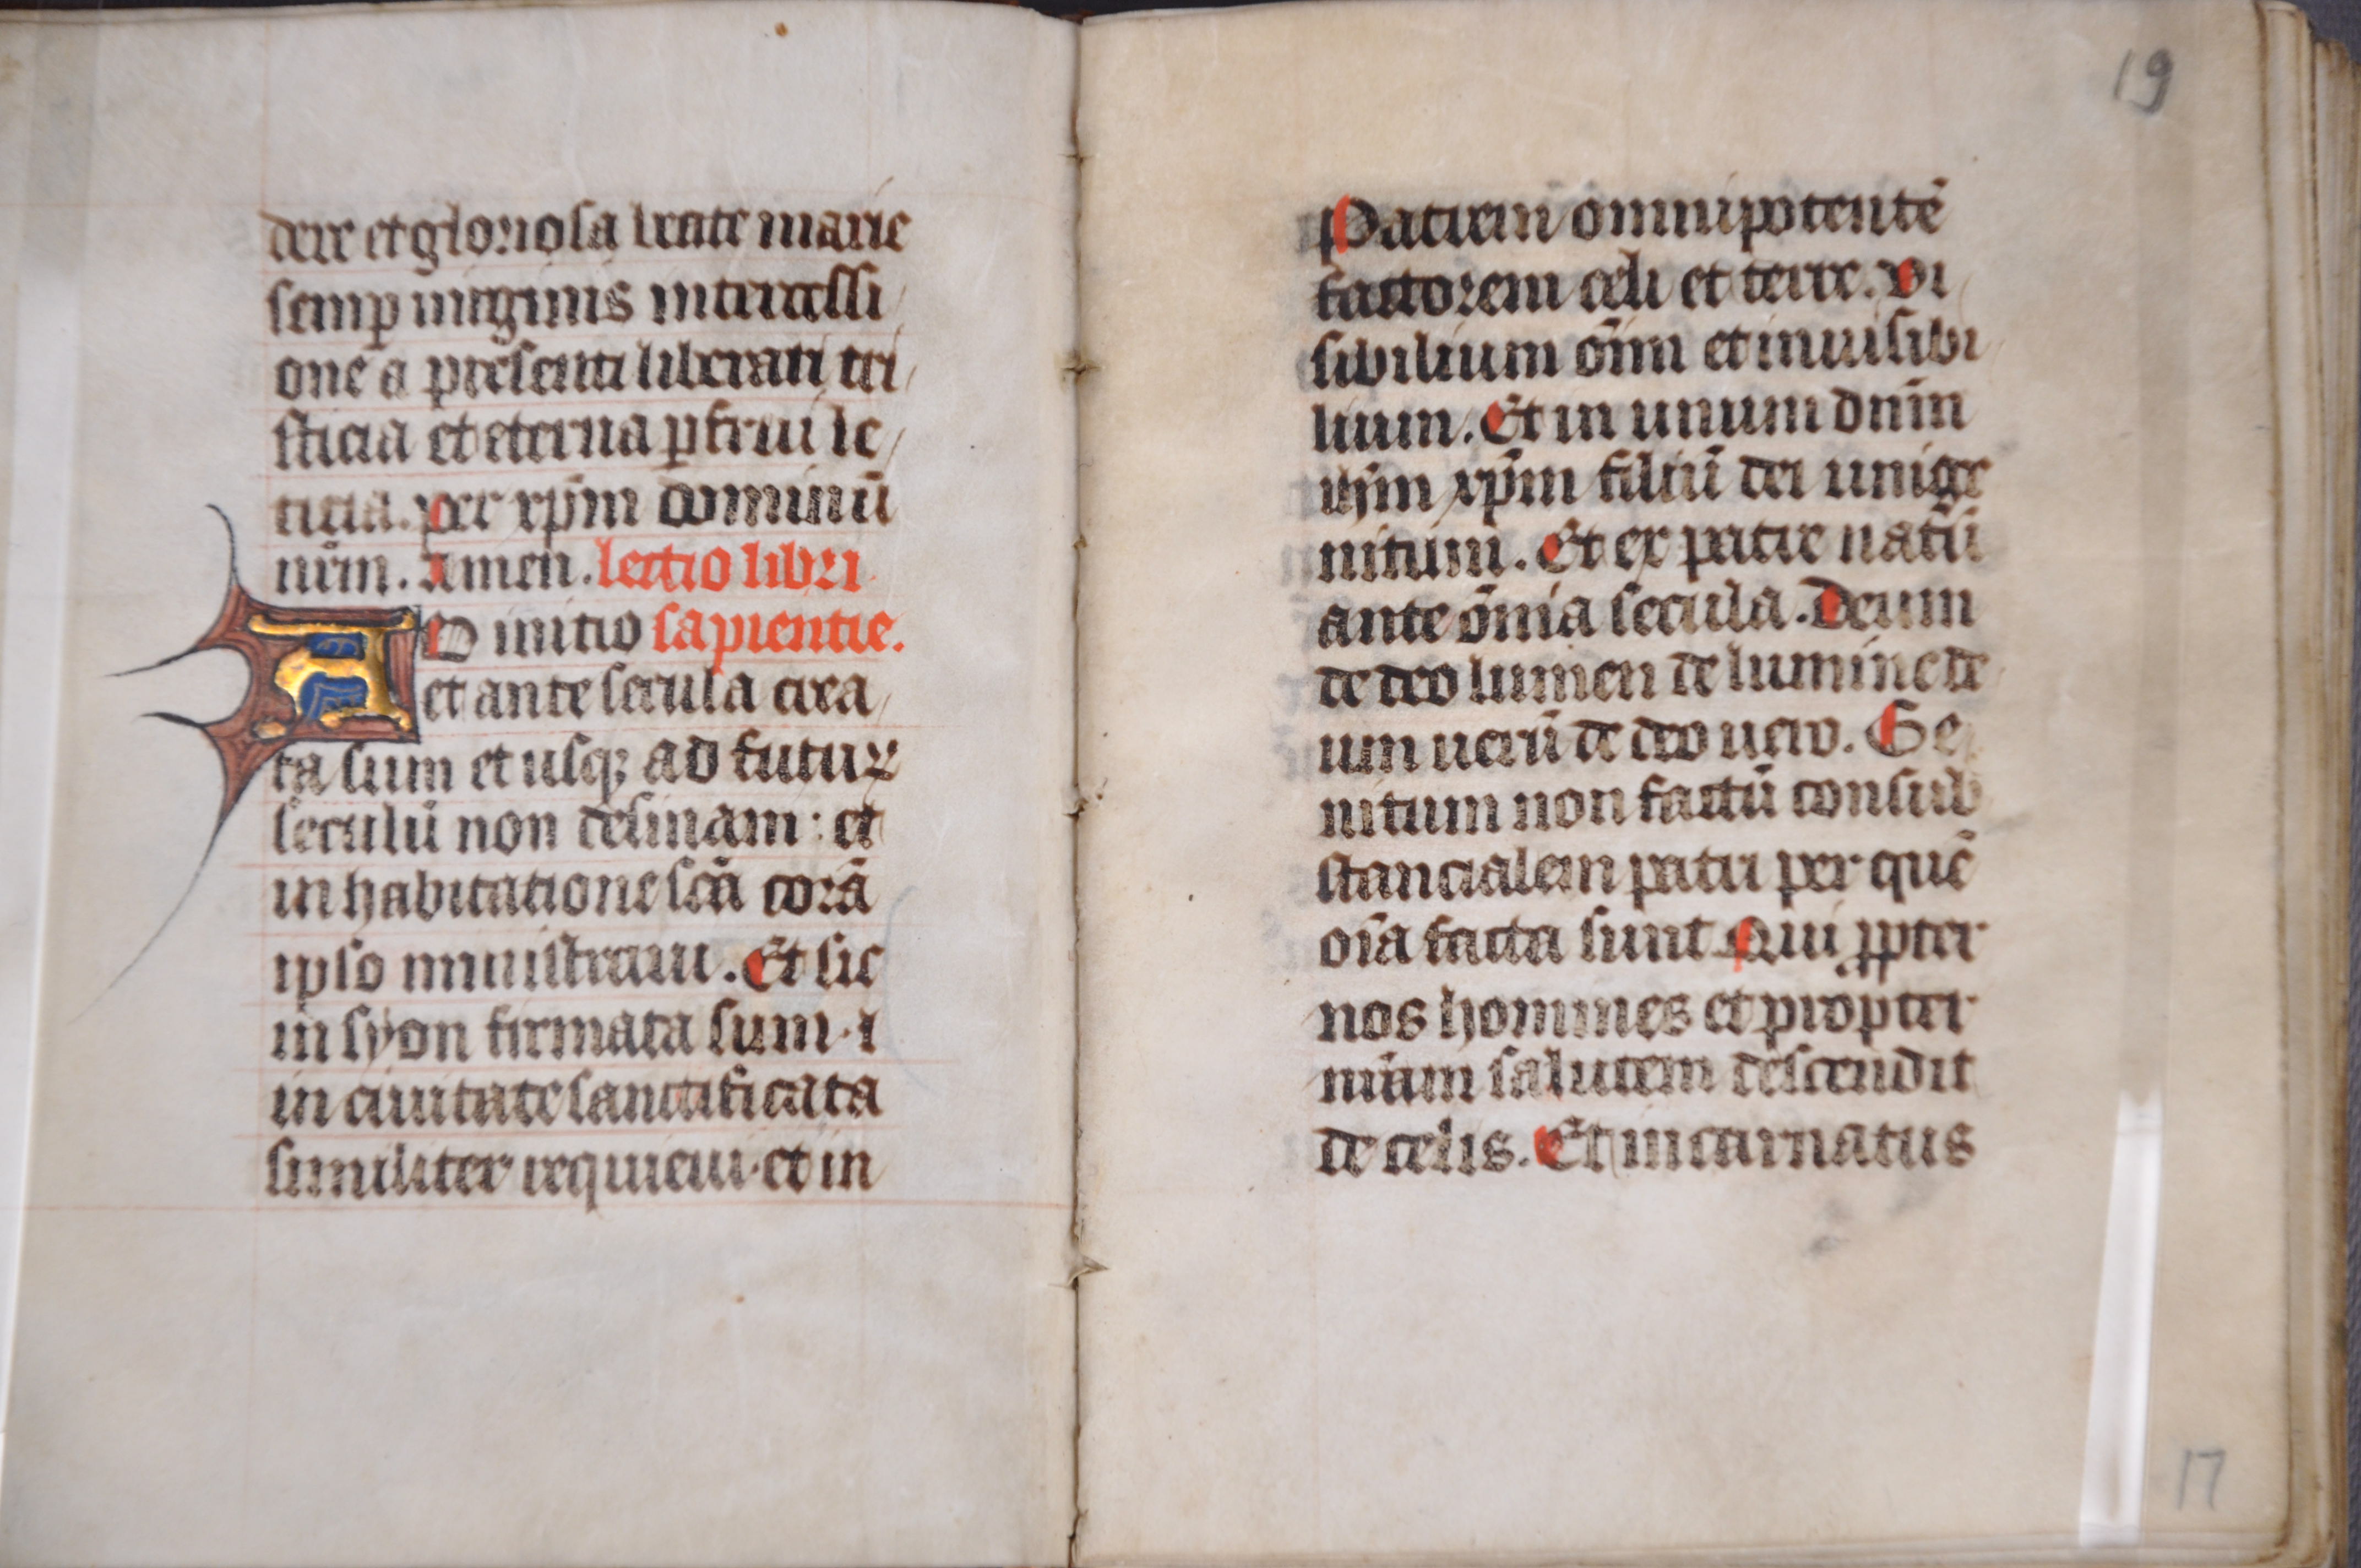 dere et gloriosa beate marie
semꝑ uirginis intercessi
one a presenti liberari tri
sticia et eterna ꝑfrui le
ticia. per xp̄m dominū
nr̄m. Amen. lectio libri
AB initio sapientie.
et ante secula crea
ta sum et usqꝫ ad futuꝝ
seculū non desinam: et
in habitatione sc̄a corā
ipso ministraui. Et sic
in syon firmata sum · i
in ciuitate sanctificata
similiter requieui · et in
19
Patrem omnipotentē
factorem celi et terre. vi
sibilium om̄i et inuisibi
lium. Et in unum dn̄m
ihm̄ xp̄m filiū dei unige
nitum. Et ex patre natū
ante om̄ia secula. Deum
de deo lumen de lumine de
um uerū de deo uero. Ge
nitum non factū consub
stancialem patri per quē
oīa facta sunt Qui ꝓpter
nos homines et propter
nr̄am salutem descendit
de celis. Et incarnatus
17